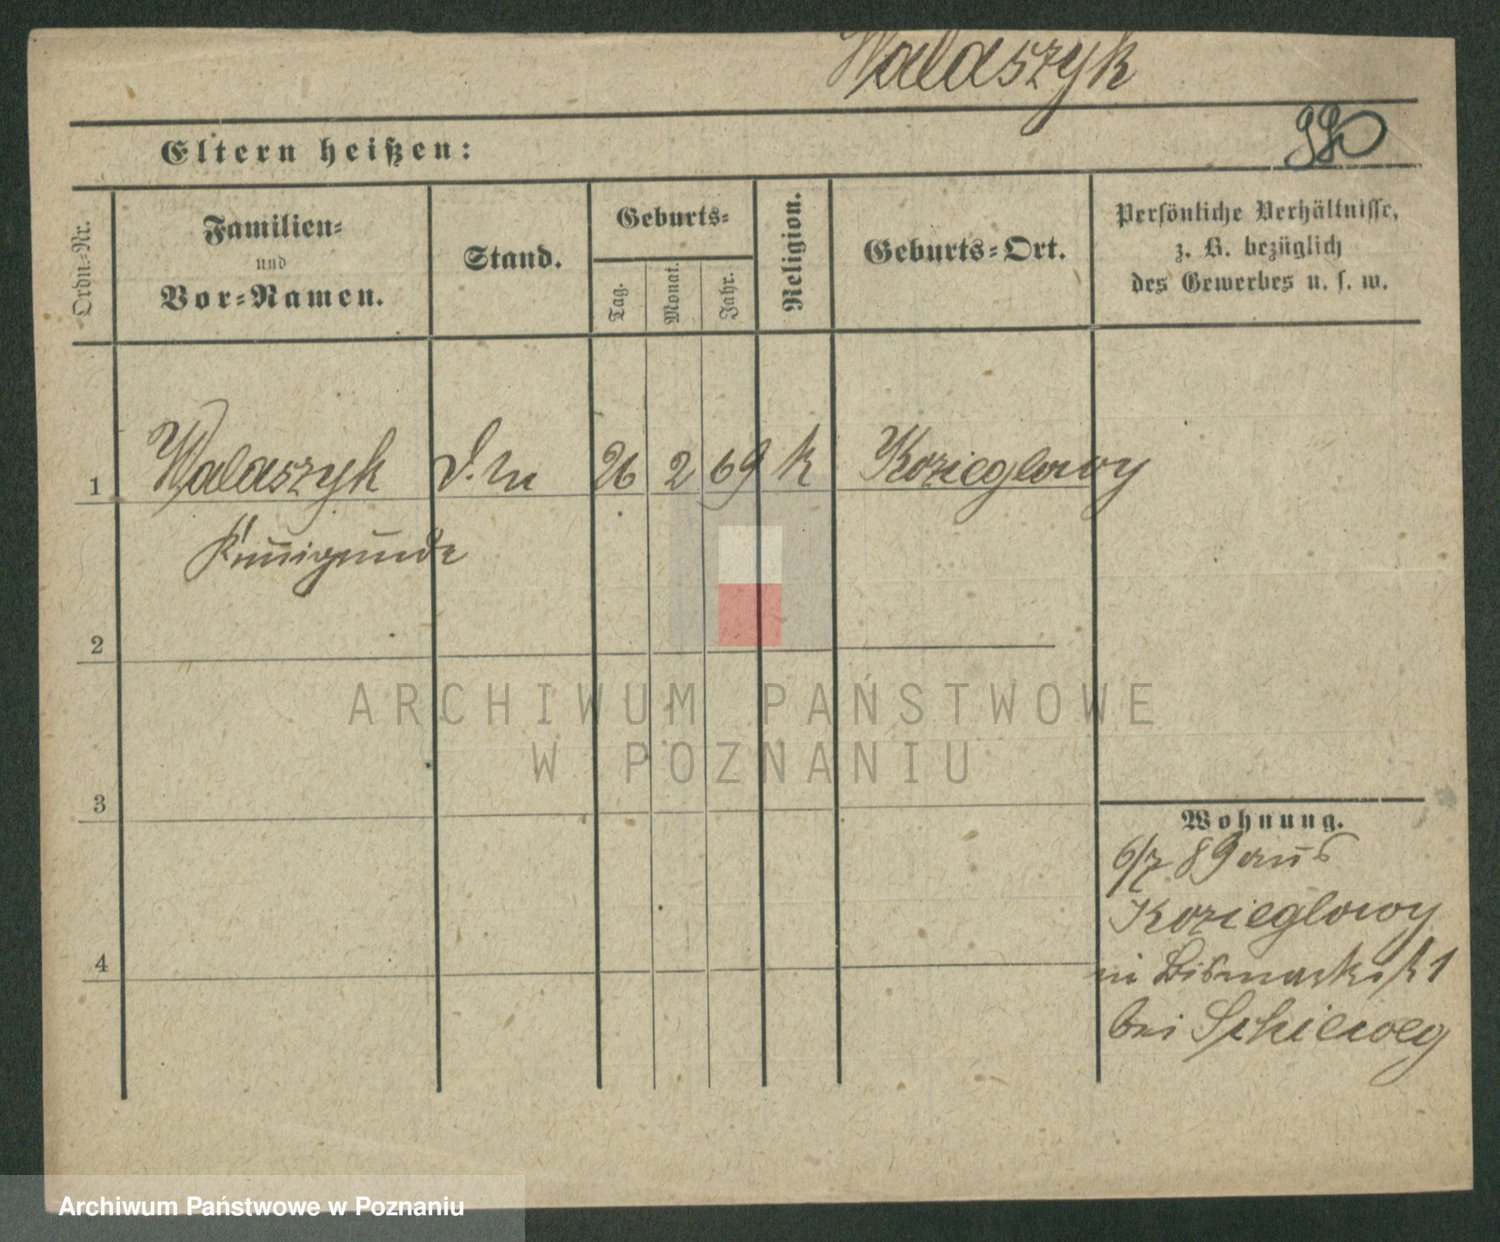 Walaszyk
Eltern heißen:
Ordn.-Nr.
Familien-
und
Vor-Namen.
Stand.
Geburts-
Tag.
Monat.
Jahr.
Religion.
Geburts-Ort.
Persönliche Verhältnisse,
z. B. bezüglich
des Gewerbes u. s. w.
1 Walaszyk 26 2 69 k Kozieglowy
Kunigunde
2
ARCHIWUM PAŃSTWOWE
W POZNANIU
3
Wohnung.
6/7 89 aus
Kozieglowy
4
in Bismarkst 1
bei
Archiwum Państwowe w Poznaniu